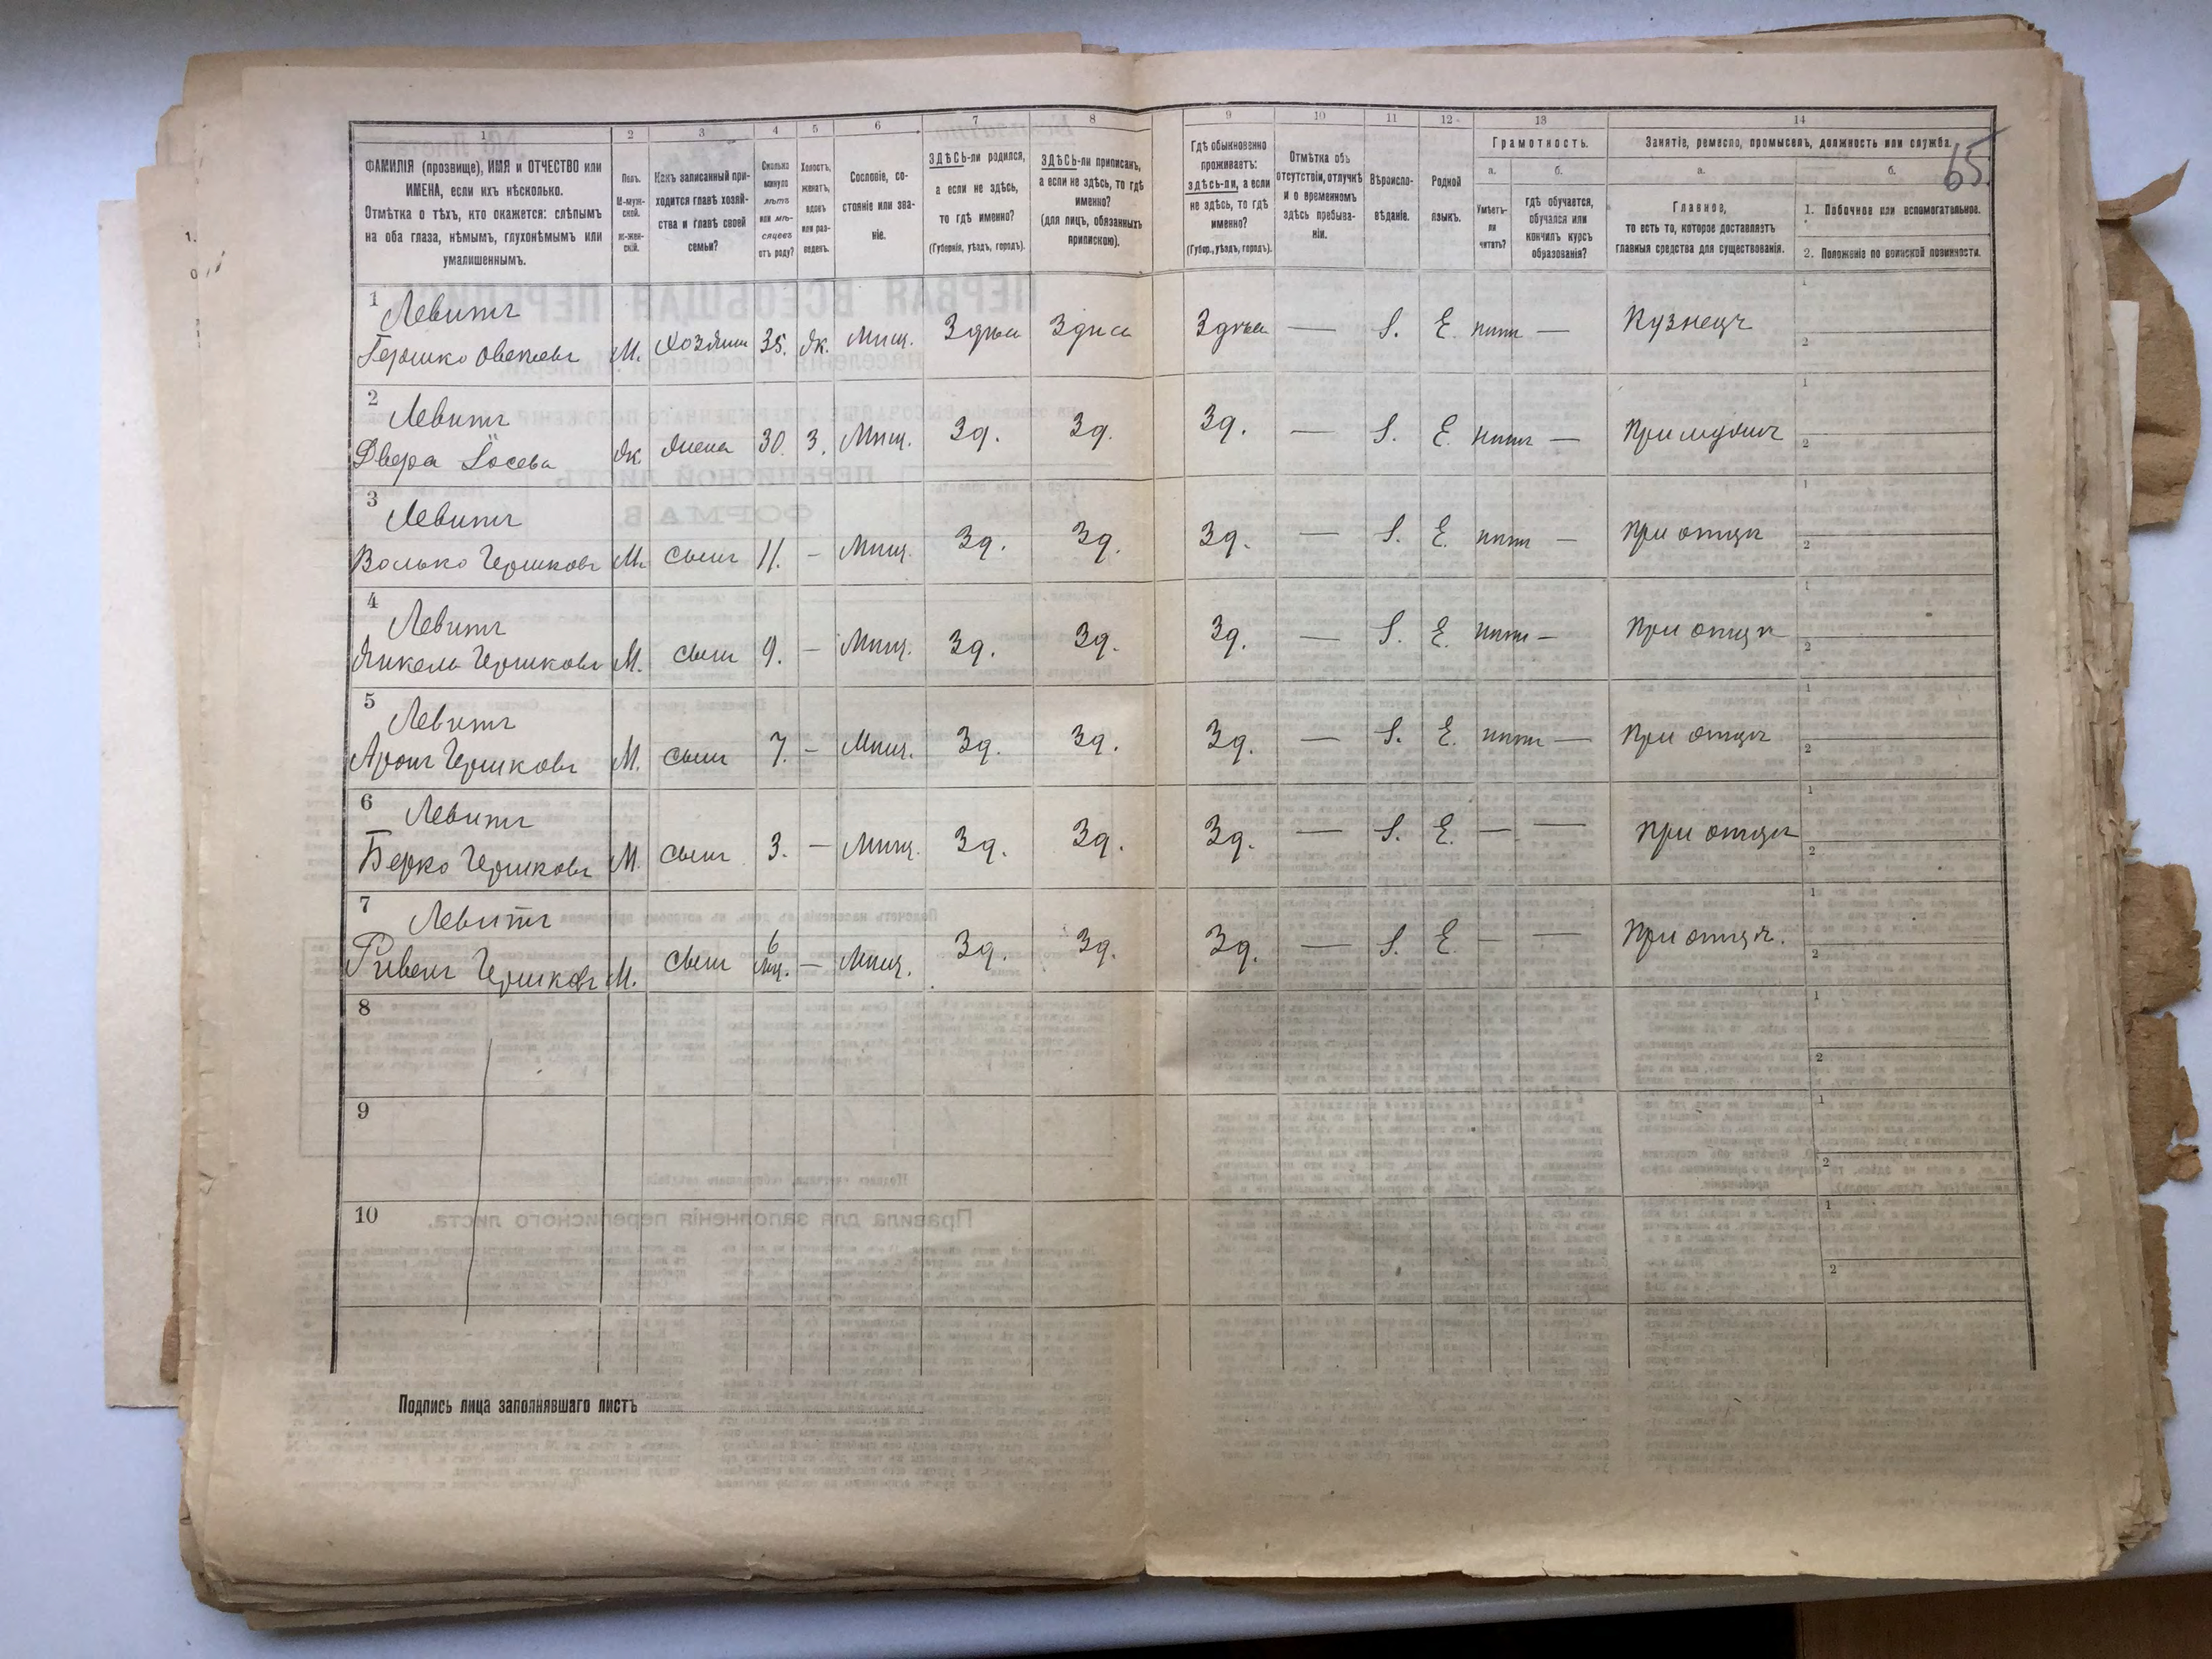 65.
1 2 3 4 5 6 7 8 9 10 11 12 13 14
ФАМИЛІЯ (прозвище), ИМЯ и ОТЧЕСТВО или
ИМЕНА, если ихъ нѣсколько.
Отмѣтка о тѣхъ, кто окажется: слѣпымъ
на оба глаза, нѣмымъ, глухонѣмымъ или
умалишеннымъ.
Полъ.
М-муж-
ской.
Ж-жен-
скій.
Какъ записанный при-
ходится главѣ хозяй-
ства и главѣ своей
семьи?
Сколько
минуло
лѣтъ
или мѣ-
сяцевъ
отъ роду?
Холостъ,
женатъ,
вдовъ
или раз-
веденъ.
Сословіе, со-
стояніе или зва-
ніе.
ЗДѢСЬ-ли родился,
а если не здѣсь,
то гдѣ именно?
(Губернія, уѣздъ, городъ).
ЗДѢСЬ-ли приписанъ,
а если не здѣсь, то гдѣ
именно?
(для лицъ, обязанныхъ
припискою).
Гдѣ обыкновенно
проживаетъ:
здѣсь-ли, а если
не здѣсь, то гдѣ
именно?
(Губер., уѣздъ, городъ).
Отмѣтка объ
отсутствіи, отлучкѣ
и о временномъ
здѣсь пребыва-
ніи.
Вѣроиспо-
вѣданіе.
Родной
языкъ.
Грамотность.
а.
Умѣетъ-
ли
читать?
б.
гдѣ обучается,
обучался или
кончилъ курсъ
образованія?
Занятіе, ремесло, промыселъ, должность или служба.
а.
Главное,
то есть то, которое доставляетъ
главныя средства для существованія.
б.
1. Побочное или вспомогательное.
2. Положеніе по воинской повинности.
1 Левитъ
Гершко М. хозяинъ 35. Ж. Мещ. Здѣсь Здѣсь Здѣсь — I. Е. — Кузнецъ
2 Левитъ
Двера Іосева Ж жена 30. З. Мещ. Зд. Зд. Зд. — I. Е. — При мужѣ
3 Левитъ
Волько Гершковъ М. сынъ 11. – Мещ. Зд. Зд. Зд. — I. Е. — При отцѣ
4 Левитъ
Янкель Гершковъ М. сынъ 9. – Мещ. Зд. Зд. Зд. — I. Е. — При отцѣ
5 Левитъ
Аронъ Гершковъ М. сынъ 7. – Мещ. Зд. Зд. Зд. — I. Е. — При отцѣ
6 Левитъ
Берко Гершковъ М. сынъ 3. – Мещ. Зд. Зд. Зд. — I. Е. — — При отцѣ
7 Левитъ
Рувенъ Гершковъ М. сынъ 6 мѣс. – Мещ. Зд. Зд. Зд. — I. Е. — — При отцѣ.
8
9
10
Подпись лица заполнявшаго листъ